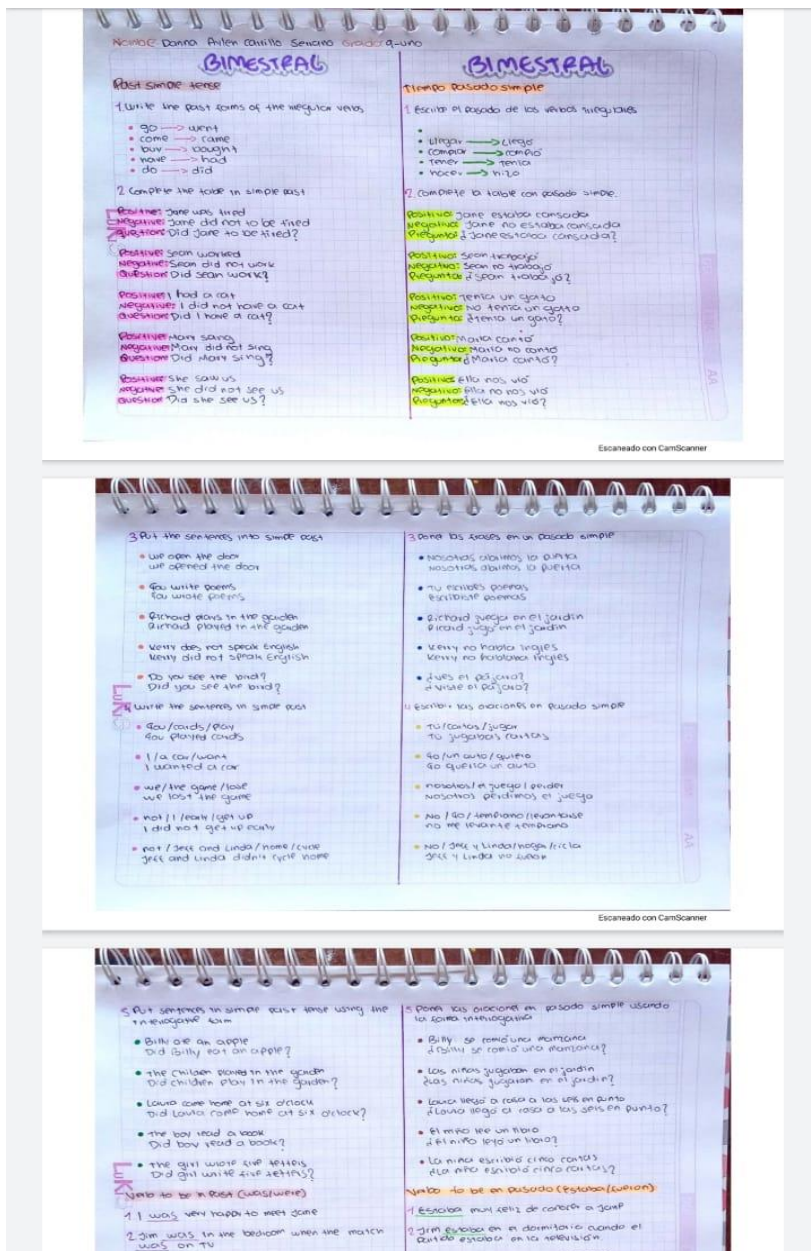 Nombre Danna Aylen Carrillo Serrano Grado 9-uno
BIMESTRAL
Past simple tense
1. Write the past forms of the irregular verbs
• go → went
• come → came
• buy → bought
• have → had
• do → did
2 Complete the table in simple past
Positive: Jane was tired
Negative: Jane did not to be tired
Question: Did Jane to be tired?
Positive: Sean worked
Negative: Sean did not work
Question: Did Sean work?
Positive: I had a cat
Negative: I did not have a cat
Question: Did I have a cat?
Positive: Mary sang
Negative: Mary did not sing
Question: Did Mary sing?
Positive: She saw us
Negative: She did not see us
Question: Did she see us?
LUKI
BIMESTRAL
Tiempo pasado simple
1 Escribe el pasado de los verbos irregulares
•
• Llegar → Llegó
• comprar → compró
• Tener → tenía
• hacer → hizo
2. Complete la table con pasado simple.
Positivo: Jane estaba cansada
Negativo: Jane no estaba cansada
Pregunta: ¿Jane estaba cansada?
Positivo: Sean trabajó
Negativo: Sean no trabajó
Pregunta: ¿Sean trabajó?
Positivo: Tenia un gato
Negativo: No tenia un gatto
Pregunta: ¿tenia un gato?
Positivo: Maria cantó
Negativo: Maria no cantó
Pregunta: ¿Maria cantó?
Positivo: Ella nos vió
Negativo: Ella no nos vió
Pregunta: ¿Ella nos vió?
AA
Escaneado con CamScanner
3 Put the sentences into simple past
• we open the door
we opened the door
• You write poems
You wrote poems
• Richard plays in the garden
Richard played in the garden
• Kerry does not speak English
Kerry did not speak English
• Do you see the bird?
Did you see the bird?
4 Write the sentences in simple past
• You/cards/play
You played cards
• I/a car/want
I wanted a car
• we/the game/lose
we lost the game
• not/I/early/get up
I did not get up early
• not/Jeff and Linda/home/cycle
Jeff and Linda didn't cycle home
LUKI
3 Poner las frases en un pasado simple
• Nosotros abrimos la puerta
Nosotros abrimos la puerta
• Tu escribes poemas
Escribiste poemas
• Richard juega en el jardín
Ricard jugo en el jardin
• Kerry no habla ingles
Kerry no hablaba ingles
• ¿ves el pájaro?
¿viste el pájaro?
4 Escribir las oraciones en pasado simple
• Tú/cartas/jugar
Tú jugabas cartas
• Yo/un auto/quiero
Yo quería un auto
• nosotros/el juego/perder
Nosotros perdimos el juego
• No/Yo/temprano/levantarse
no me levante temprano
• No/Jeff y Linda/hogar/cicla
Jeff y Linda no fueron
AA
Escaneado con CamScanner
5 Put sentences in simple past tense using the
interrogative form
• Billy ate an apple
Did Billy eat an apple?
• The children played in the garden
Did children play in the garden?
• Laura came home at six o'clock
Did Laura come home at six o'clock?
• The boy read a book
Did boy read a book?
• The girl wrote five letters
Did girl write five letters?
Verb to be in Past (was/were)
1 I was very happy to meet Jane
2 Jim was in the bedroom when the match
was on TV
LUKI
5 Poner las oraciones en pasado simple usando
la forma interrogativa
• Billy se comió una manzana
¿Billy se comió una manzana?
• Las niñas jugaban en el jardín
¿Las niñas jugaran en el jardin?
• Laura llegó a casa a las seis en punto
¿Laura llegó a casa a las seis en punto?
• El niño lee un libro
¿El niño leyó un libro?
• La niña escribió cinco cartas
¿La niña escribió cinco cartas?
Verbo to be en pasado (estaba/fueron)
1 Estaba muy feliz de conocer a Jane
2 Jim estaba en el dormitorio cuando el
partido estaba en la televisión.